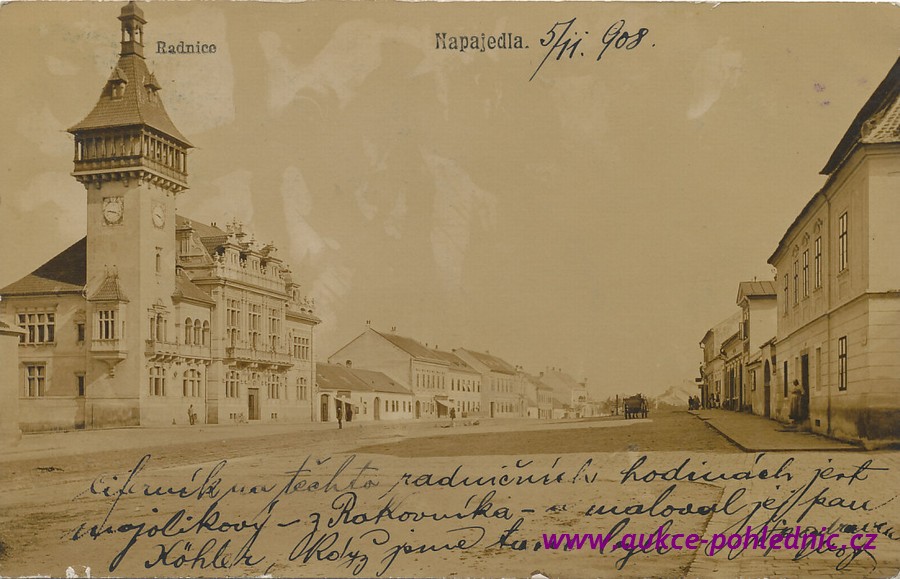 Radnice
Napajedla. 5/II. 908.
ciferník na těchto radničních hodinách jest
majolikový – z Rakovníka – a maloval jej pan
Köhler, když jsme tu
www.aukce-pohlednic.cz